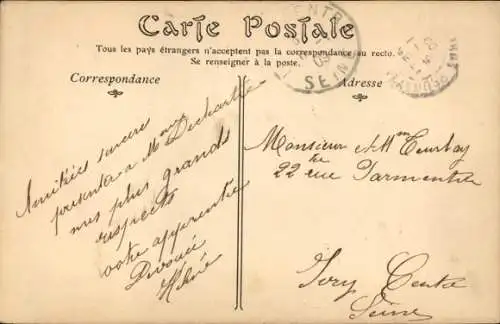 Carte Postale
Tous les pays étrangers n'acceptent pas la correspondance au recto.
Se renseigner à la poste.
Correspondance
Adresse
Amitiés sincères
presenter a Mme
mes plus grands
respects
votre apprentie
Devouée
Monsieur et Mme Courbay
22 rue Parmentier
Ivry Centre
Seine
CENTR
SEINE